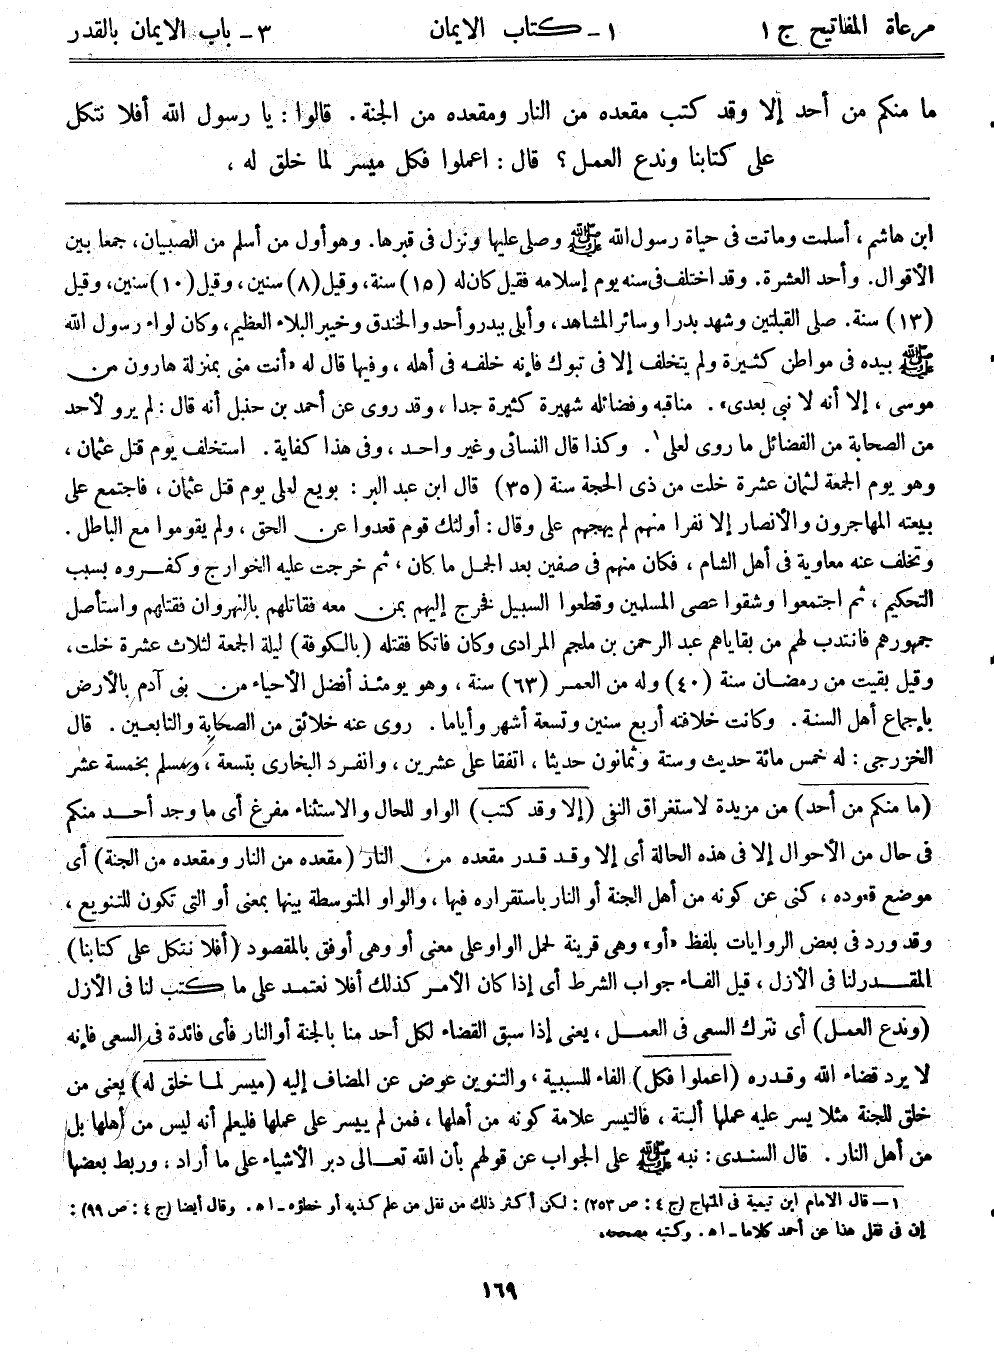 مرعاة المفاتيح ج ١
١ - كتاب الإيمان
٣ - باب الإيمان بالقدر
ما منكم من أحد إلا وقد كتب مقعده من النار ومقعده من الجنة. قالوا: يا رسول الله أفلا نتكل
على كتابنا وندع العمل؟ قال: اعملوا فكل ميسر لما خلق له،
ابن هاشم، أسلمت وماتت فى حياة رسول الله ﷺ وصلى عليها ونزل فى قبرها. وهو أول من أسلم من الصبيان، جمعا بين
الأقوال. وأحد العشرة. وقد اختلف فى سنه يوم إسلامه فقيل كان له (١٥) سنة، وقيل (٨) سنين، وقيل (١٠) سنين، وقيل
(١٣) سنة. صلى القبلتين وشهد بدرا وسائر المشاهد، وأبلى ببدر وأحد والخندق وخيبر البلاء العظيم، وكان لواء رسول الله
ﷺ بيده فى مواطن كثيرة ولم يتخلف إلا فى تبوك فإنه خلفه فى أهله، وفيها قال له «أنت منى بمنزلة هارون من
موسى، إلا أنه لا نبى بعدى». مناقبه وفضائله شهيرة كثيرة جدا، وقد روى عن أحمد بن حنبل أنه قال: لم يرو لأحد
من الصحابة من الفضائل ما روى لعلى ١. وكذا قال النسائى وغير واحد، وفى هذا كفاية. استخلف يوم قتل عثمان،
وهو يوم الجمعة لثمان عشرة خلت من ذى الحجة سنة (٣٥) قال ابن عبد البر: بويع لعلى يوم قتل عثمان، فاجتمع على
بيعته المهاجرون والأنصار إلا نفرا منهم لم يهجهم على وقال: أولئك قوم قعدوا عن الحق، ولم يقوموا مع الباطل.
وتخلف عنه معاوية فى أهل الشام، فكان منهم فى صفين بعد الجمل ما كان، ثم خرجت عليه الخوارج وكفروه بسبب
التحكيم، ثم اجتمعوا وشقوا عصى المسلمين وقطعوا السبيل فخرج إليهم بمن معه فقاتلهم بالنهروان فقتلهم واستأصل
جمهورهم فانتدب لهم من بقاياهم عبد الرحمن بن ملجم المرادى وكان فاتكا فقتله (بالكوفة) ليلة الجمعة لثلاث عشرة خلت،
وقيل بقيت من رمضان سنة (٤٠) وله من العمر (٦٣) سنة، وهو يومئذ أفضل الأحياء من بنى آدم بالأرض
بإجماع أهل السنة. وكانت خلافته أربع سنين وتسعة أشهر وأياما. روى عنه خلائق من الصحابة والتابعين. قال
الخزرجى: له خمس مائة حديث وستة وثمانون حديثا، اتفقا على عشرين، وانفرد البخارى بتسعة، ومسلم بخمسة عشر
(ما منكم من أحد) من مزيدة لاستغراق النفى (إلا وقد كتب) الواو للحال والاستثناء مفرغ أى ما وجد أحد منكم
فى حال من الأحوال إلا فى هذه الحالة أى إلا وقد قدر مقعده من النار (مقعده من النار ومقعده من الجنة) أى
موضع قعوده، كنى عن كونه من أهل الجنة أو النار باستقراره فيها، والواو المتوسطة بينها بمعنى أو التى تكون للتنويع،
وقد ورد فى بعض الروايات بلفظ «أو» وهى قرينة لحمل الواو على معنى أو وهى أوفق بالمقصود (أفلا نتكل على كتابنا)
المقدر لنا فى الأزل، قيل الفاء جواب الشرط أى إذا كان الأمر كذلك أفلا نعتمد على ما كتب لنا فى الأزل
(وندع العمل) أى نترك السعى فى العمل، يعنى إذا سبق القضاء لكل أحد منا بالجنة أو النار فأى فائدة فى السعى فإنه
لا يرد قضاء الله وقدره (اعملوا فكل) الفاء للسببية، والتنوين عوض عن المضاف إليه (ميسر لما خلق له) يعنى من
خلق للجنة مثلا يسر عليه عملها ألبتة، فالتيسر علامة كونه من أهلها، فمن لم ييسر على عملها فليعلم أنه ليس من أهلها بل
من أهل النار. قال السندى: نبه ﷺ على الجواب عن قولهم بأن الله تعالى دبر الأشياء على ما أراد، وربط بعضها
١ - قال الامام ابن تيمية فى المنهاج (ج ٤: ص ٢٥٣): لكن أكثر ذلك من نقل من علم كذبه أو خطؤه - اه. وقال أيضا (ج ٤: ص ٩٩):
إن فى نقل هذا عن أحمد كلاما - اه. وكتبه مصححه.
١٦٩